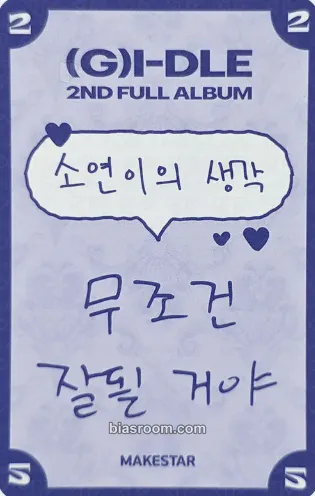 2 2
(G)I-DLE
2ND FULL ALBUM
소연이의 생각
무조건
잘될 거야
biasroom.com
MAKESTAR
5 5